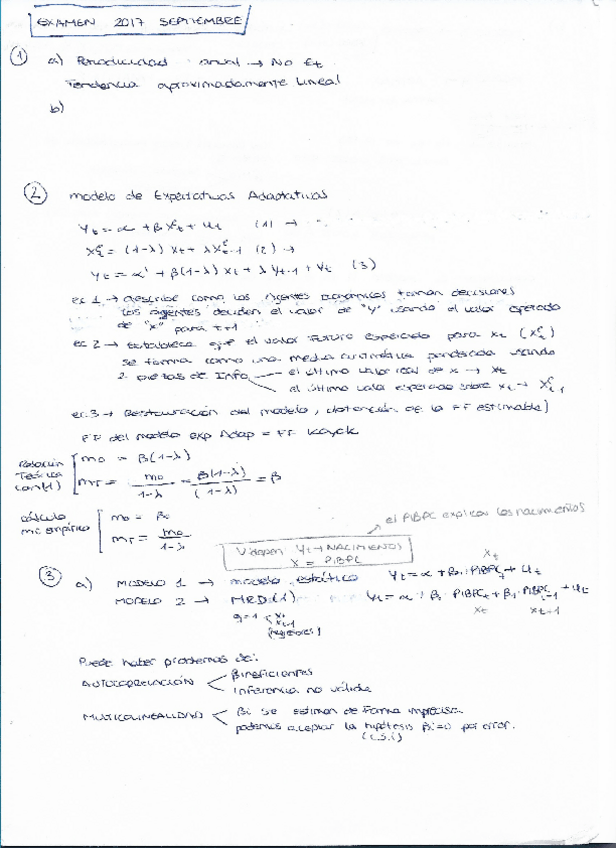 EXAMEN 2017 SEPTIEMBRE
① a) Periodicidad anual → No Et
Tendencia aproximadamente Lineal
b)
② modelo de Expectativas Adaptativas
Yt = α + β Xᵉt + Ut (1) →
Xᵉt = (1-λ) Xt + λ Xᵉt-1 (2) →
Yt = α' + β(1-λ) Xt + λ Yt-1 + Vt (3)
ec 1 → describe como los agentes económicos toman decisiones
los agentes deciden el valor de "y" usando el valor esperado
de "x" para t+1
ec 2 → establece que el valor futuro esperado para xt (Xᵉt)
se forma como una media aritmética ponderada usando
2 piezas de Info. el último valor real de x → xt
el último valor esperado sobre xt → Xᵉt-1
ec 3 → Restauración del modelo, obtención de la FF estimable]
FF del modelo exp Adap = FF Koyck
Relación Teórica con (1) [ m0 = β(1-λ)
mT = m0 / 1-λ = β(1-λ) / (1-λ) = β
cálculo m. empírico [ m0 = β0
mT = m0 / 1-λ
el PIBPC explica los nacimientos
V. depen Yt → NACIMIENTOS
X = PIBPC
③ a) MODELO 1 → modelo estático Yt = α + β0 · PIBPCt + Ut
xt
MODELO 2 → MRD(1) Yt = α + β0 · PIBPCt + β1 · PIBPCt-1 + Ut
q=1 xt xt-1 xt xt-1
(regresores)
Puede haber problemas de:
AUTOCORRELACIÓN β ineficientes
inferencia no válida
MULTICOLINEALIDAD βi se estiman de forma imprecisa
podemos aceptar la hipótesis βi=0 por error.